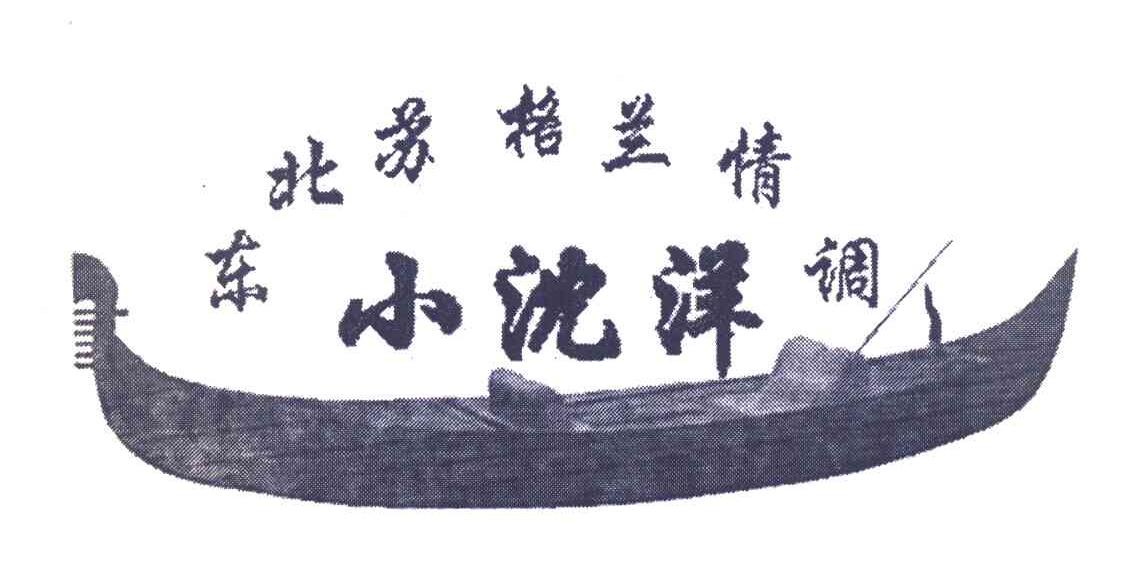 东北苏格兰情调
小沈洋